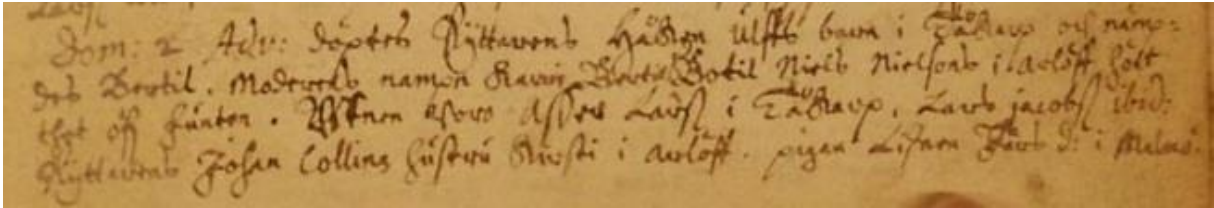 Dom: 2 Adv: döptes Ryttarens Håken Ulffs barn i Tåkarp och nämn-
des Bertil. Moderens namn Karin Botil Niels Nielsons i Arlöff hölt
thet öff: funten. Witnen woro Asser Larss i Tåkarp, Lars jacobss ibid:
Ryttarens Johan Collins hustru Kirsti i Arlöff. pigan Lisken d: i Malmö.